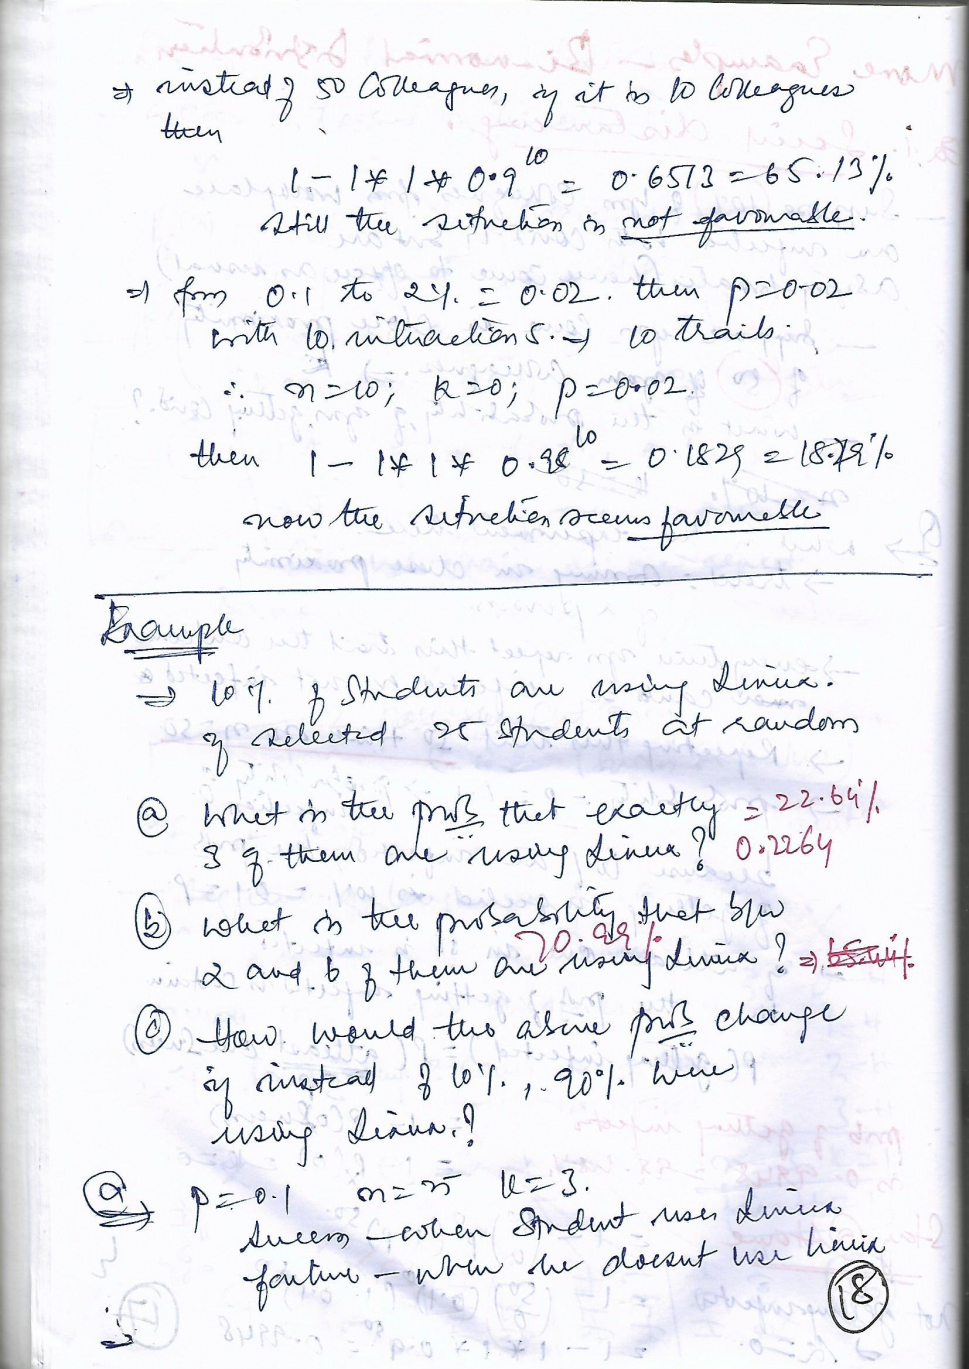 ⇒ instead of 50 Colleagues, if it is 10 Colleagues
then
1 - 1 * 1 * 0.9^10 = 0.6513 = 65.13%
still the situation is not favourable.
⇒ from 0.1 to 2% = 0.02. then p=0.02
with 10 interactions. ⇒ 10 trails.
∴ n=10; k=0; p=0.02.
then 1 - 1 * 1 * 0.98^10 = 0.1829 = 18.29%
now the situation seems favourable
Example
⇒ 10% of Students are using Linux.
if selected 25 students at random
(a) What is the prob that exactly = 22.64%
3 of them are using Linux? 0.2264
(b) What is the probability that b/w
70.99%
2 and 6 of them are using Linux? ⇒
(c) How would the above prob change
if instead of 10%, 90% were
using Linux.?
(a) p=0.1 n=25 k=3.
Success - when Student uses Linux
failure - when he doesnt use Linux
⇒
18